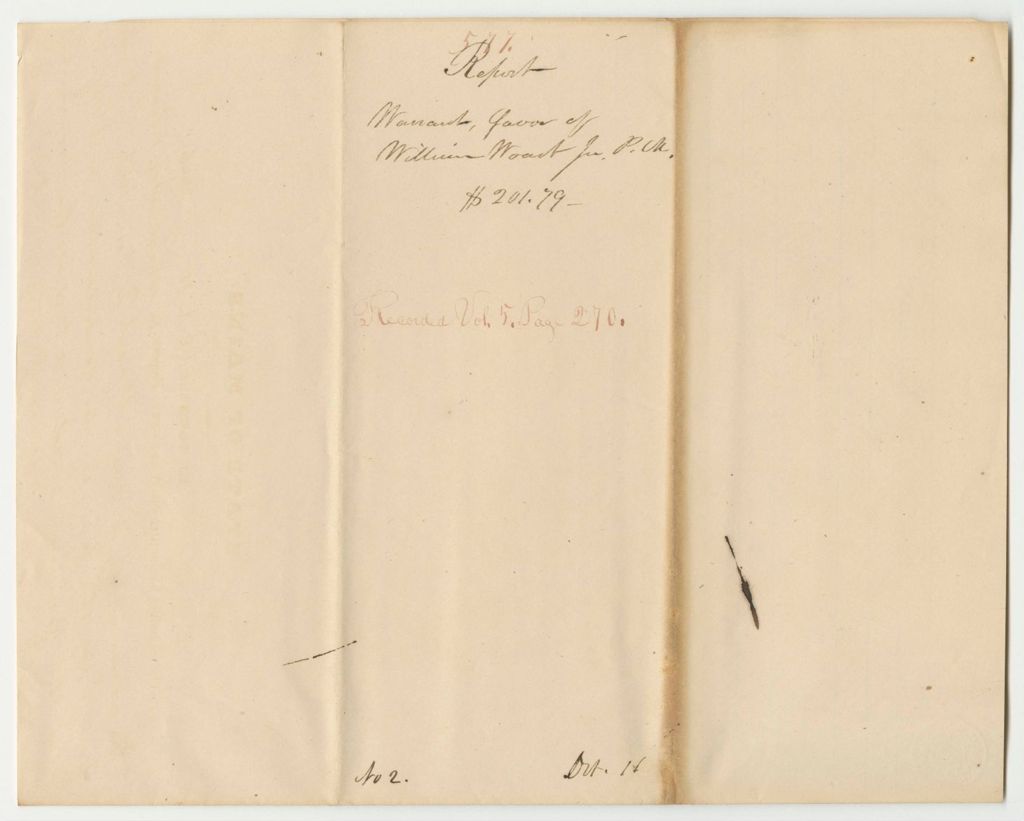 Report
Warrant, favor of
William Woart Jr. P. M.
$ 201.79–
Recorded Vol. 5. Page 270.
No 2.
Oct.